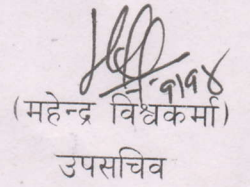 (महेन्द्र विश्वकर्मा)
उपसचिव